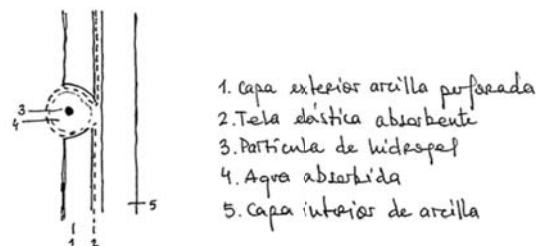 3
4
5
1 2
1. Capa exterior arcilla perforada
2. Tela elástica absorbente
3. Partícula de hidrogel
4. Agua absorbida
5. Capa interior de arcilla